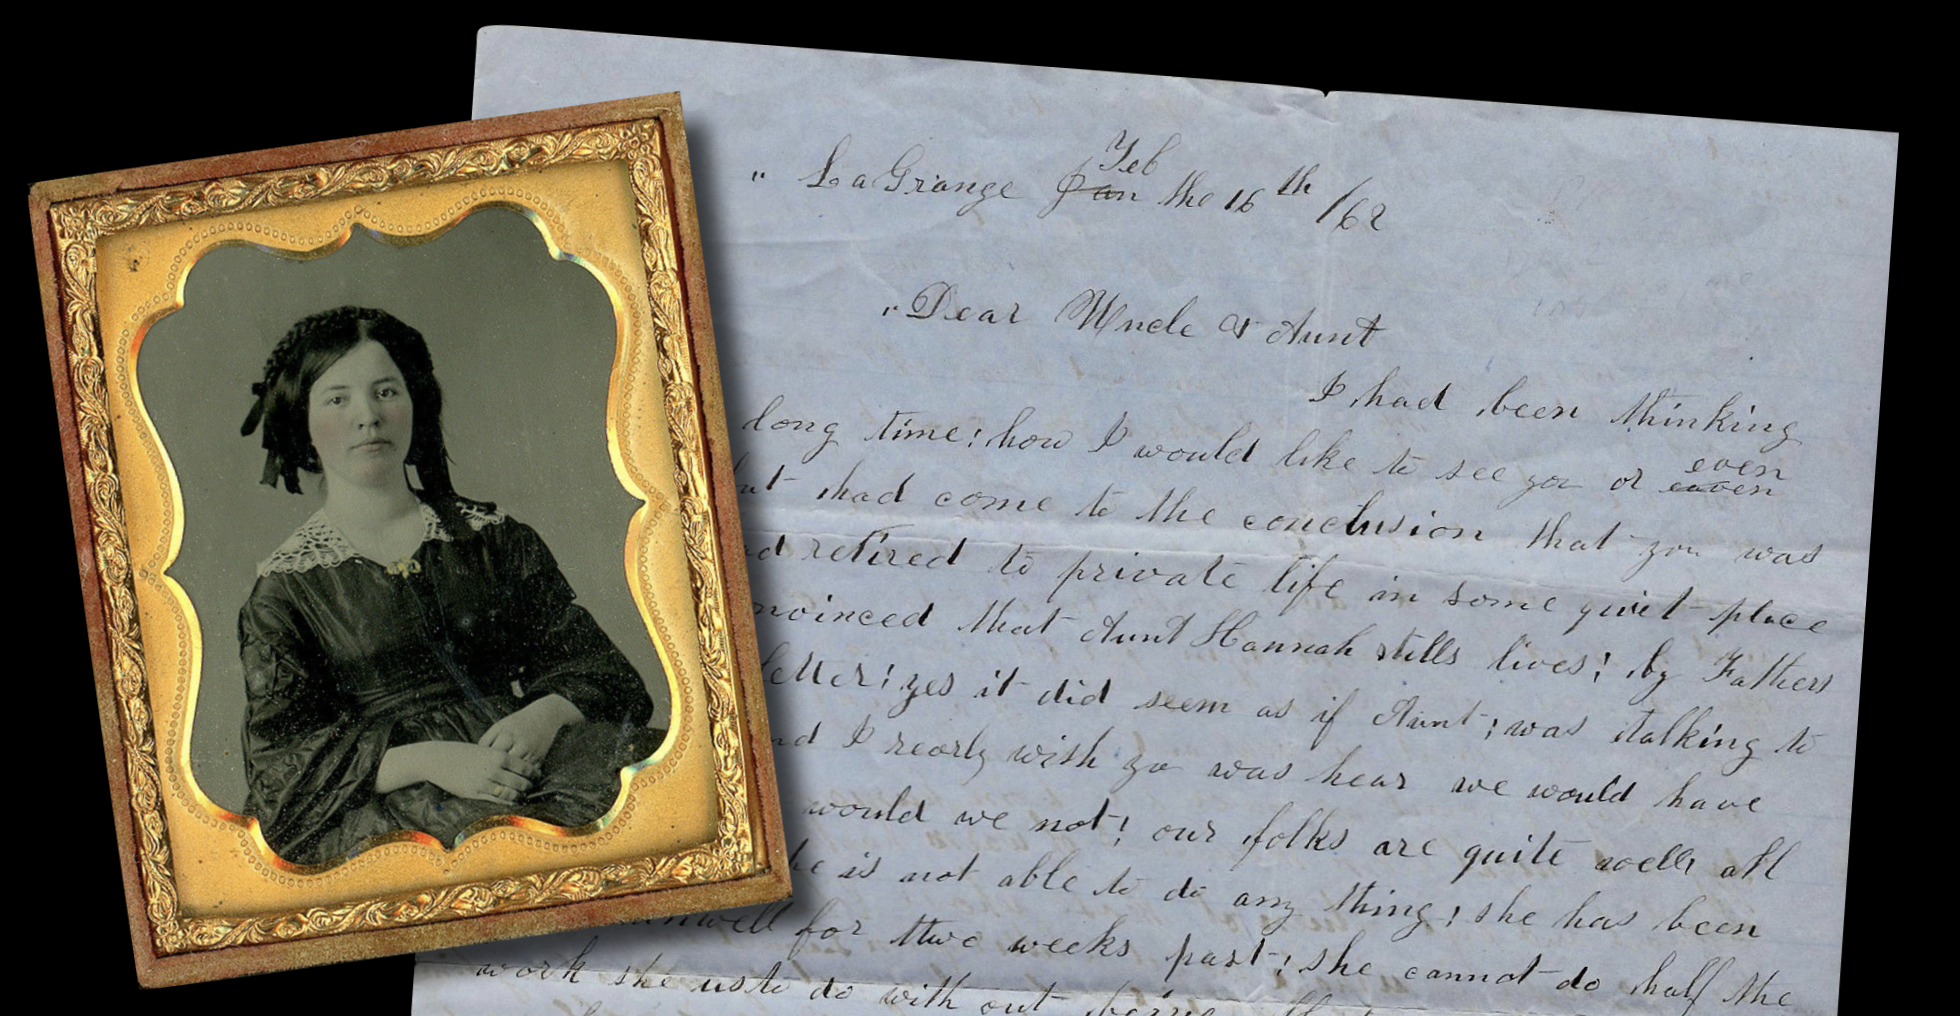 " LaGrange Jan Feb the 16th /62
"Dear Uncle & Aunt
I had been thinking
long time; how I would like to see you or even
had come to the conclusion that you was
retired to private life in some quiet place
that Aunt Hannah stills lives; by Fathers
letter; yes it did seem as if Aunt; was talking to
I rearly wish yo was hear we would have
would we not; our folks are quite well; all
he is not able to do any thing; she has been
unwell for thwe weeks past; she cannot do half the
work she usto do with out